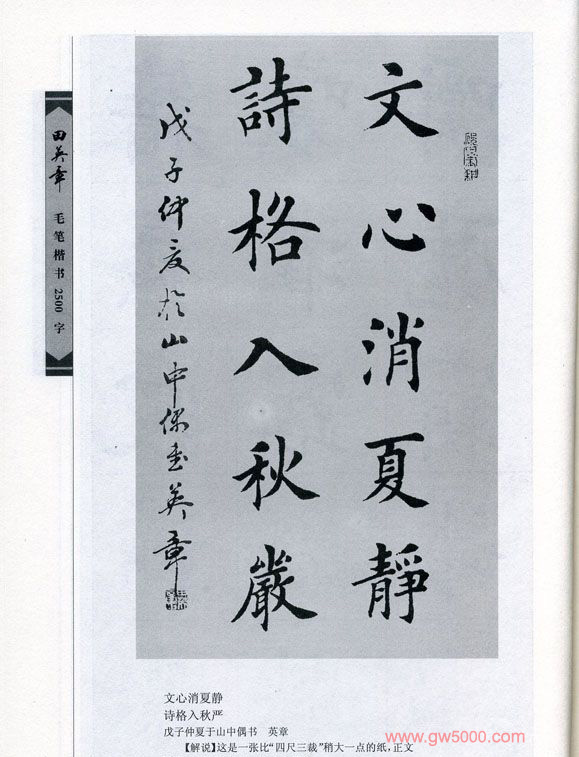 文心消夏靜
詩格入秋嚴
戊子仲夏於山中偶書英章
田英章 毛笔楷书2500字
文心消夏静
诗格入秋严
戊子仲夏于山中偶书 英章
【解说】这是一张比“四尺三裁”稍大一点的纸,正文
www.gw5000.com